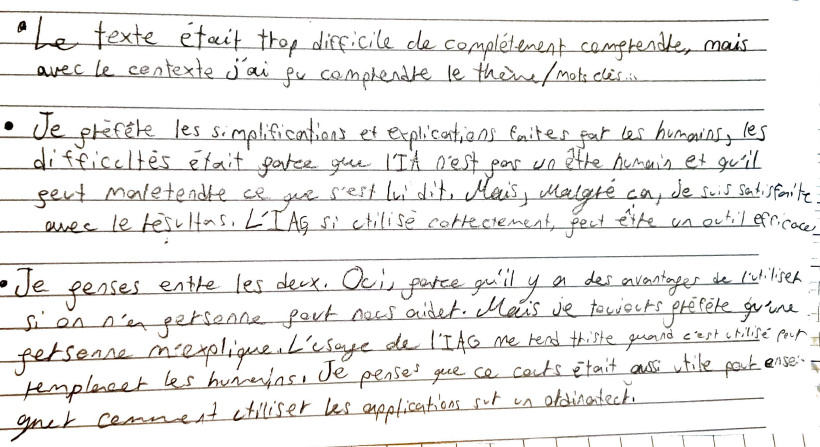 • Le texte était trop difficile de complétement comprendre, mais
avec le contexte j'ai pu comprendre le thème/mots clés...
• Je préfère les simplifications et explications faites par les humains, les
difficultés était parce que l'IA n'est pas un être humain et qu'il
peut maletendre ce que s'est lui dit. Mais, malgré ça, je suis satisfaite
avec le résultas. L'IAG si utilisé correctement, peut être un outil efficace,
• Je penses entre les deux. Oui, parce qu'il y a des avantages de l'utiliser
si on n'a personne pour nous aider. Mais je toujours préfère qu'une
personne m'explique. L'usage de l'IAG me rend triste quand c'est utilisé pour
remplacer les humains. Je penses que ce cours était aussi utile pour ensei-
gner comment utiliser les applications sur un ordinateur.